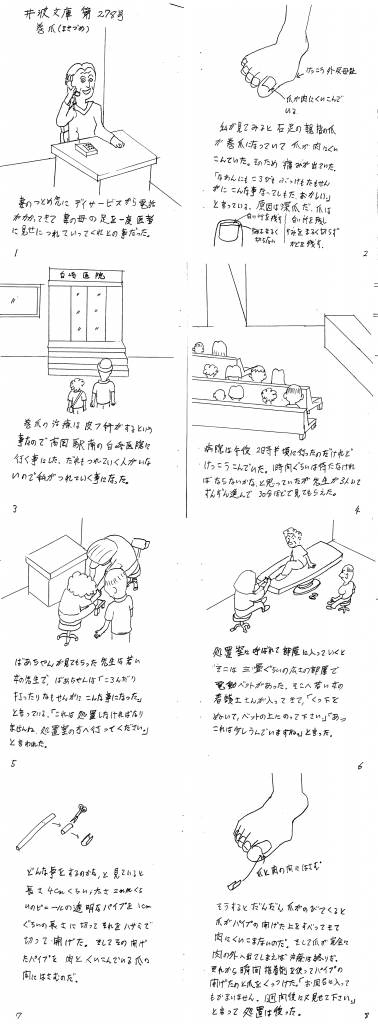 井波文庫 第278号
巻爪(まきづめ)
妻のつとめ先に デイサービスから電話
がかかってきて 妻の母の足を一度医者
に見せにつれていってくれとの事だった。
1
けっこう外反母趾
爪が肉にくいこんで
いる
私が見てみると右足の親指の爪
が巻爪になっていて 爪が肉にくい
こんでいた。そのため 痛みが出ていた。
「なあんにもころびもぶつけもたもせん
がにこんな事なってしもた、おかしい」
と言っている。原因は深爪だ。爪は
白い所を残す
角はまるく
切らない
白い所を残し
かどを残す。
2
臼崎医院
巻爪の治療は皮フ科がするという
事なので 市内駅南の臼崎医院に
行く事にした。だれもつれていく人がいな
いので私がつれていく事になった。
3
病院は午後2時半頃に行ったのだけれど
けっこうこんでいた。1時間ぐらいは待たなけれ
ばならないかな、と思っていたが先生が3人いて
ずんずん進んで 30分ほどで見てもらえた。
4
ばあちゃんが見てもらった先生は若い
女の先生で、ばあちゃんは「ころんだり
打ったりなもせんがにこんな事になった」
と言っている。「これは処置しなければなり
ませんね。処置室の方へ行ってください」
と言われた。
5
処置室に呼ばれて部屋に入っていくと
そこは三畳ぐらいの広さの部屋で
電動ベットがあった。そこへ若い女の
看護士さんが入ってきて、「くつ下を
ぬいで、ベットの上にのって下さい」「あっ
これは少しうんでいますね」と言った。
6
どんな事をするのかな、と見ていると
長さ4cmくらい、太さ2mmくら
いのビニールの透明なパイプを1cm
ぐらいの長さに切ってそれをハサミで
切って開げた。そしてその開げ
たパイプを 肉とくいこんでいる爪の
間にはさむのだ。
7
爪と肉の間にはさむ
そうするとだんだん爪がのびてくると
爪がパイプの開げた上をすべってきて
肉にくいこまないのだ。そして爪が完全に
肉の外へ出てしまえば治療は終りだ。
それから瞬間接着剤を使ってパイプの
開げたのと爪をくっつけた。「お風呂に入って
もかまいません。1週間後に又見せて下さい」
と言って 処置は終った。
8